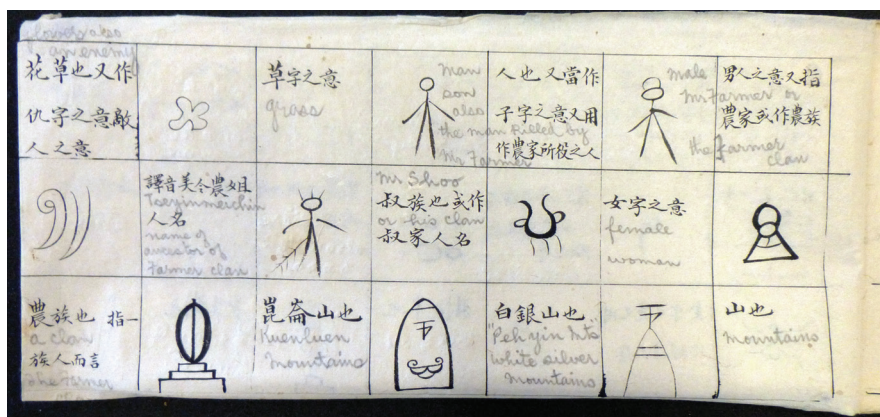 flowers also
an enemy
花草也又作
仇字之意敵
人之意
草字之意
grass
man
son
also
the man killed by
Mr Farmer
人也又當作
子字之意又用
作農家所役之人
male
Mr Farmer or
the farmer
clan
男人之意又指
農家或作農族
譯音美今農姐
人名
name of
ancestor of
Farmer clan
Mr Shoo
叔族也或作
or his clan
叔家人名
女字之意
female
woman
農族也 指一
a clan
族人而言
the Farmer
崑崙山也
Kuenluen
Mountains
白銀山也
"Peh yin Mts"
white silver
Mountains
山也
Mountains